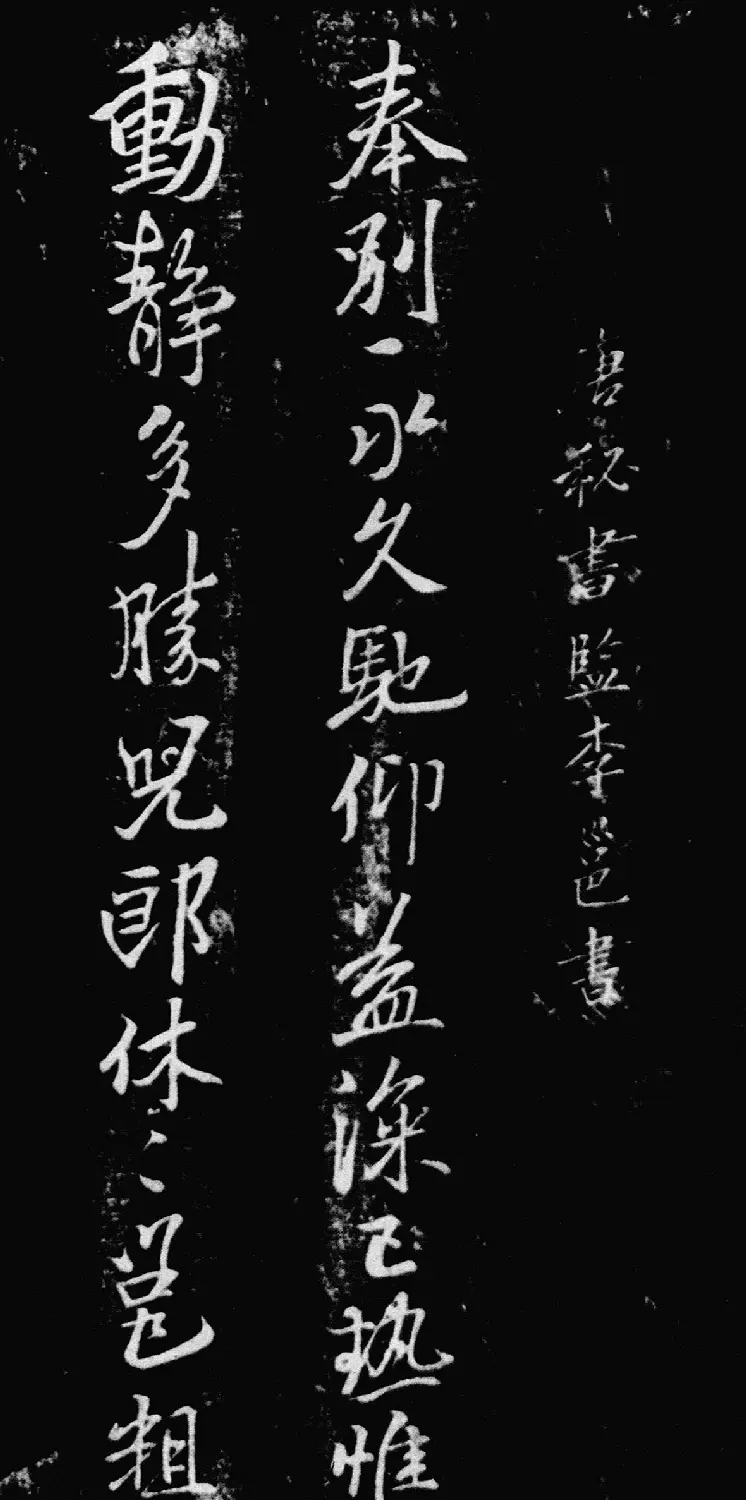 唐秘書監李邕書
奉別久馳仰益深已熱惟
動靜多勝兒郎休〻邕粗